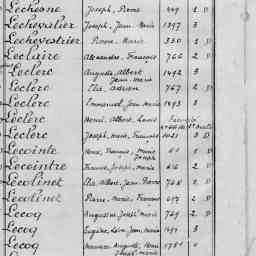 Lechesne Joseph, Pierre 449 1 D
Lechevalier Joseph, Jean Marie 1397 3
Lechevestrier Pierre, Marie 350 1 D
Leclaire Alexandre, Francois 766 2 D
Leclerc Auguste, Albert 1492 3
Jean marie
Leclerc Elie, adrien 767 2 D
Leclerc Emmanuel, Jean marie 1493 3
Leclerc Henri, Albert, Louis
Leclerc Joseph, marie, Francois 1021 3 D
Lecointe René, Francois, marie 61 1 D
Joseph
Lecointre Francois, Joseph, marie 616 2 D
Lecolinet Elie, Albert, Jean, Pierre 768 2 D
Lecolinet Pierre, Marie, Francois 617 2 D
Lecoq Auguste, Joseph, marie 769 2 D
Lecoq Eugène, Jean, marie 1491 3
Lecoq Auguste, 1751 0
Joseph, marie